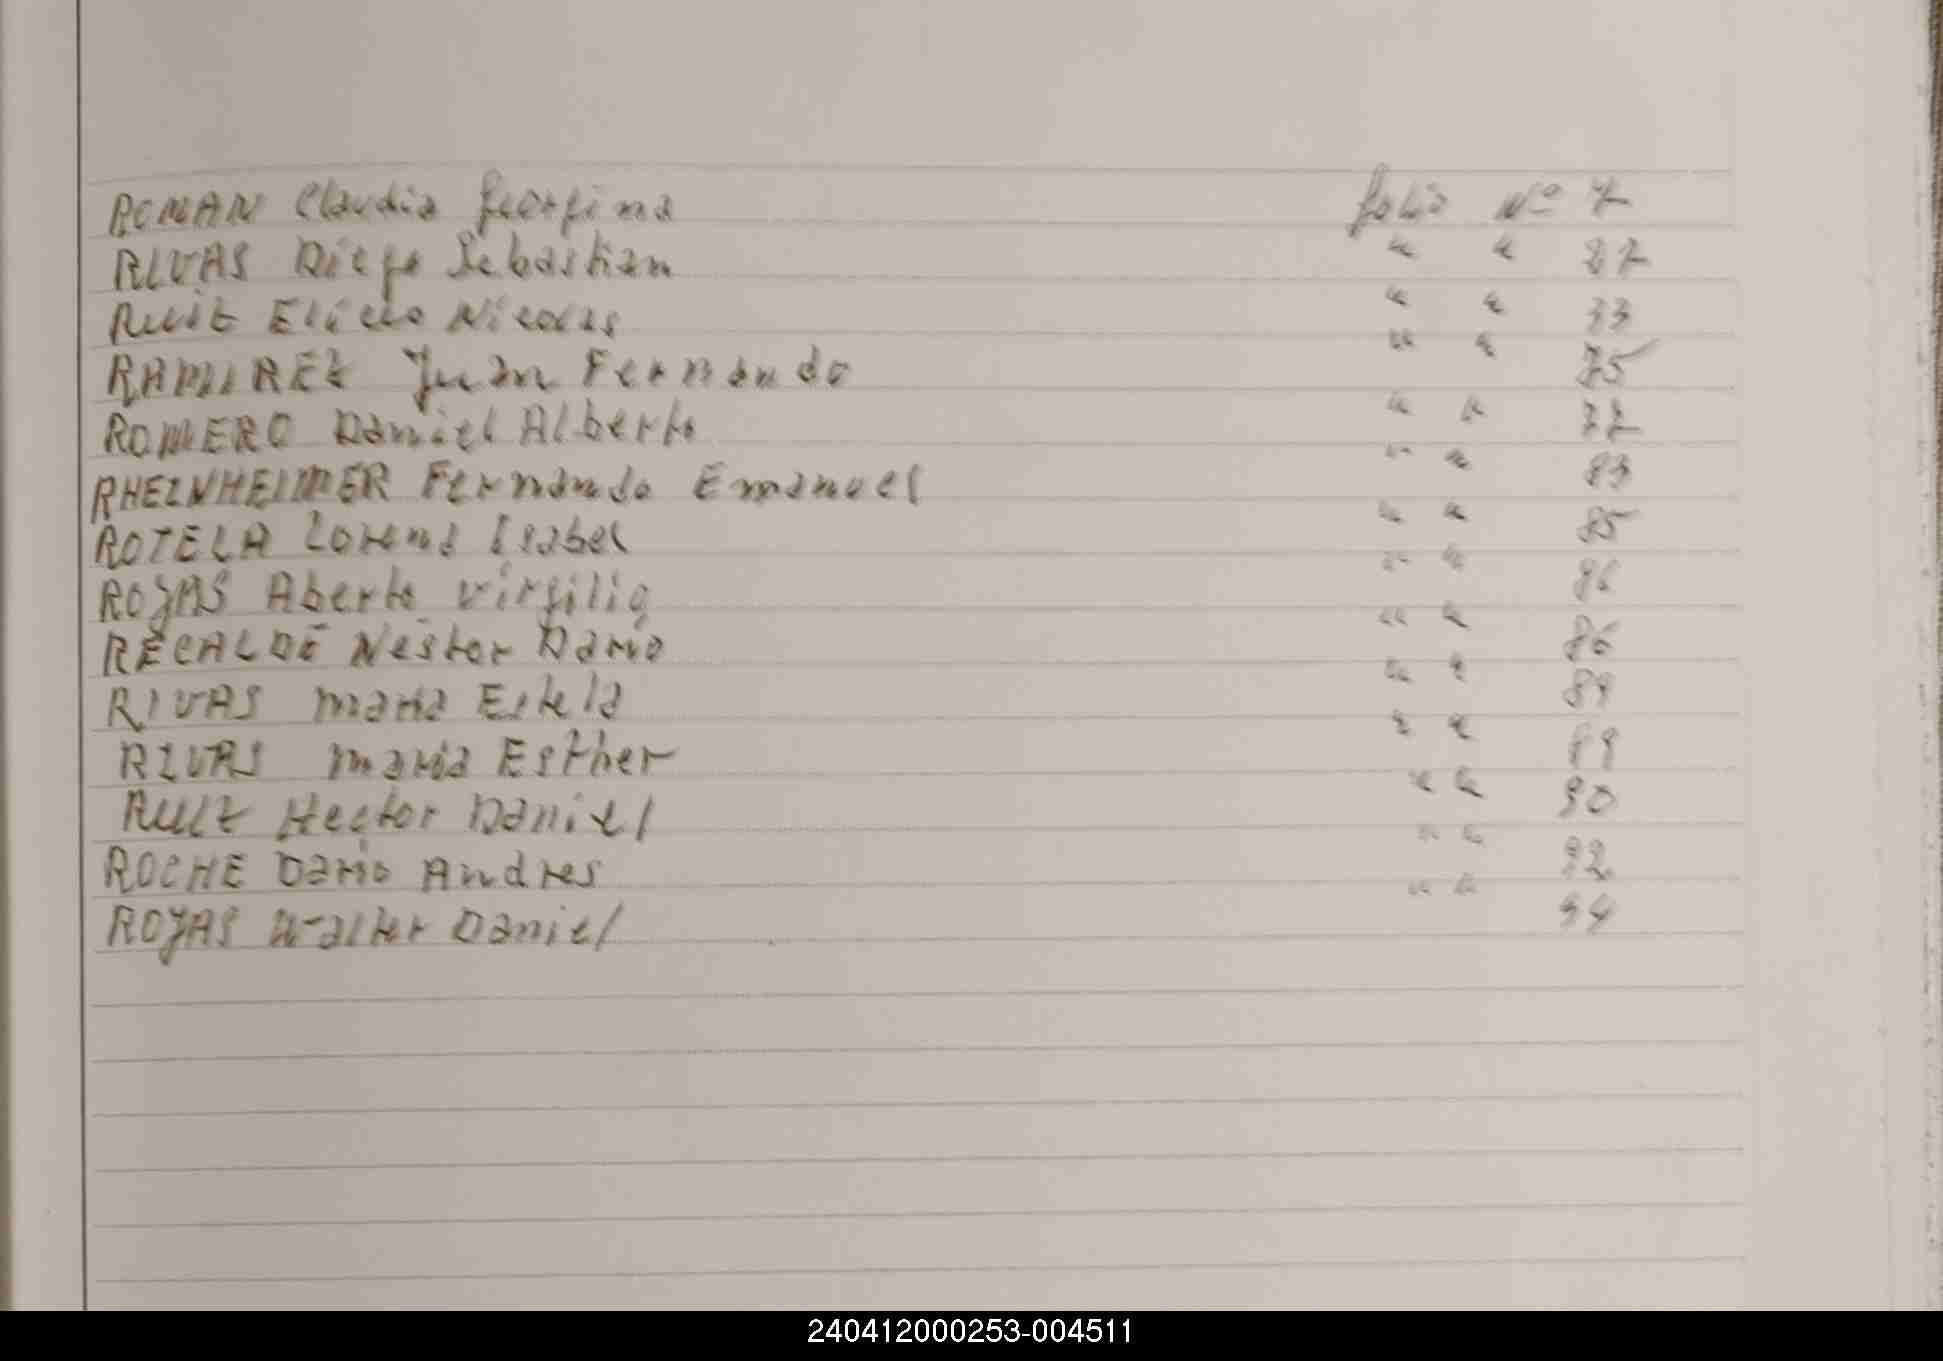 ROMAN Claudia Georgina folio Nº 7
RIVAS Diego Sebastian " " 27
RUIZ Nicolas " " 33
RAMIREZ Juan Fernando " " 75
ROMERO Daniel Alberto " "
RHEINHEIMER Fernando Emanuel " " 83
ROTELA Lorena Isabel " " 85
ROJAS Aberto Virgilio " " 86
RECALDE Nestor Dario " " 86
RIVAS Maria Estela " " 89
RIVAS Maria Esther " " 89
RUIZ Hector Daniel " " 90
ROCHE Dario Andres " " 92
ROJAS Walter Daniel " " 94
240412000253-004511